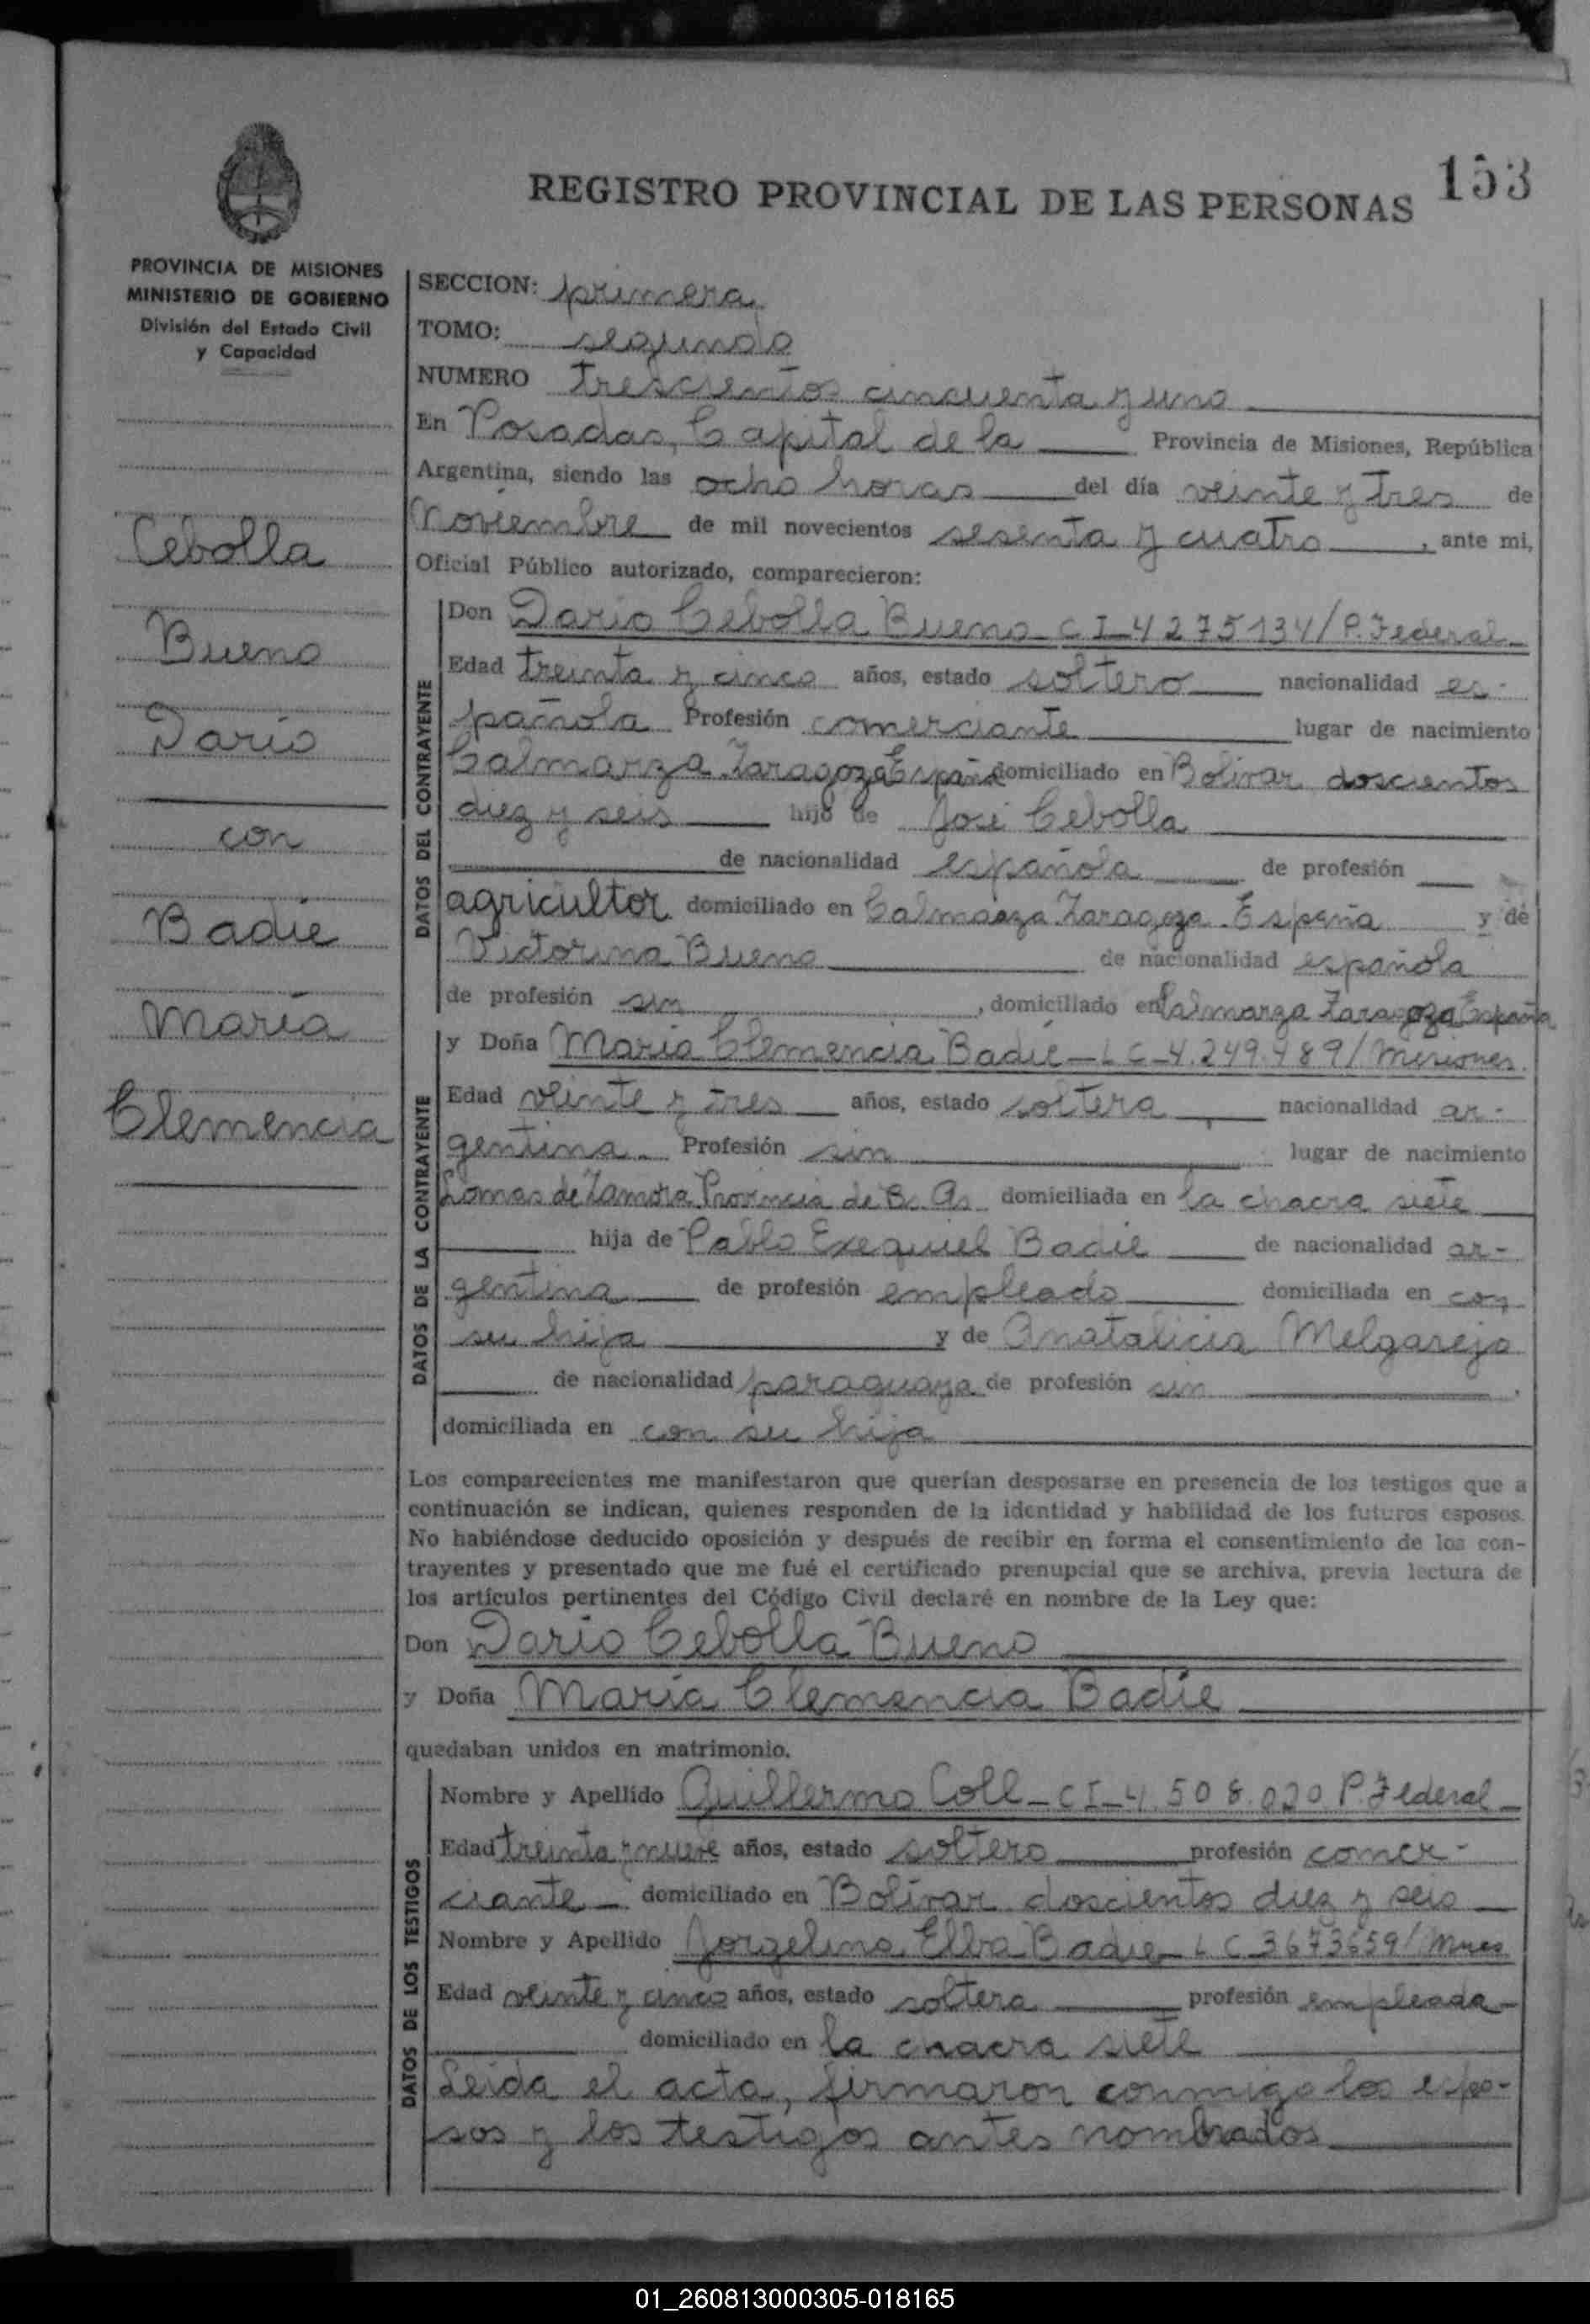 153
REGISTRO PROVINCIAL DE LAS PERSONAS
PROVINCIA DE MISIONES
MINISTERIO DE GOBIERNO
División del Estado Civil
y Capacidad
Cebolla
Bueno
Darío
con
Badie
María
Clemencia
SECCION: primera
TOMO: segundo
NUMERO trescientos cincuenta y uno
En Posadas, Capital de la Provincia de Misiones, República
Argentina, siendo las ocho horas del día veinte y tres de
Noviembre de mil novecientos sesenta y cuatro, ante mi,
Oficial Público autorizado, comparecieron:
DATOS DEL CONTRAYENTE
Don Dario Cebolla Bueno - C I - 4275134/P. Federal -
Edad treinta y cinco años, estado soltero nacionalidad es-
pañola Profesión comerciante lugar de nacimiento
Calmarza Zaragoza España domiciliado en Bolivar doscientos
diez y seis hijo de José Cebolla
de nacionalidad española de profesión
agricultor domiciliado en Calmarza Zaragoza. España y de
Victorina Bueno de nacionalidad española
de profesión sin, domiciliado en Calmarza Zaragoza España
DATOS DE LA CONTRAYENTE
y Doña María Clemencia Badie - L C - 4.249.489/Misiones.
Edad veinte y tres años, estado soltera nacionalidad ar-
gentina. Profesión sin lugar de nacimiento
Lomas de Zamora Provincia de Bs. As. domiciliada en la chacra siete
hija de Pablo Exequiel Badie de nacionalidad ar-
gentina de profesión empleado domiciliada en con
su hija y de Anatalicia Melgarejo
de nacionalidad paraguaya de profesión sin,
domiciliada en con su hija
Los comparecientes me manifestaron que querían desposarse en presencia de los testigos que a
continuación se indican, quienes responden de la identidad y habilidad de los futuros esposos.
No habiéndose deducido oposición y después de recibir en forma el consentimiento de los con-
trayentes y presentado que me fué el certificado prenupcial que se archiva, previa lectura de
los artículos pertinentes del Código Civil declaré en nombre de la Ley que:
Don Dario Cebolla Bueno
y Doña María Clemencia Badie
quedaban unidos en matrimonio.
DATOS DE LOS TESTIGOS
Nombre y Apellido Guillermo Coll - C I - 4.508.020 P. Federal -
Edad treinta y nueve años, estado soltero profesión comer-
ciante - domiciliado en Bolívar doscientos diez y seis
Nombre y Apellido Jorgelina Elba Badie - L C 3673659/Mnes
Edad veinte y cinco años, estado soltera profesión empleada -
domiciliado en la chacra siete
Leida el acta, firmaron conmigo los espo-
sos y los testigos antes nombrados
01_260813000305-018165